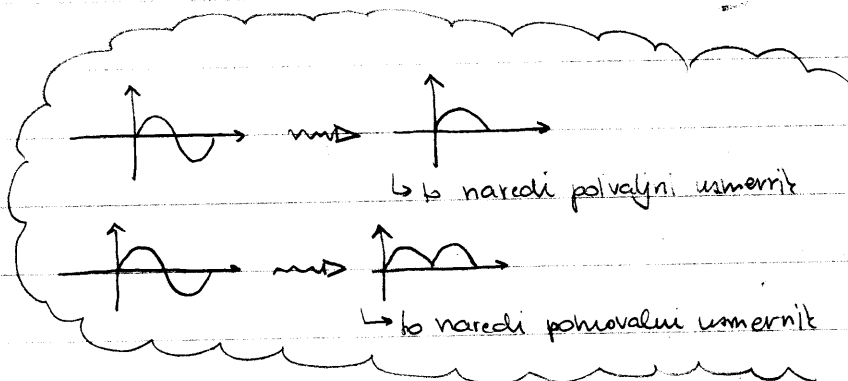 ↳ to naredi polvaljni usmernik
↳ to naredi polnovalni usmernik